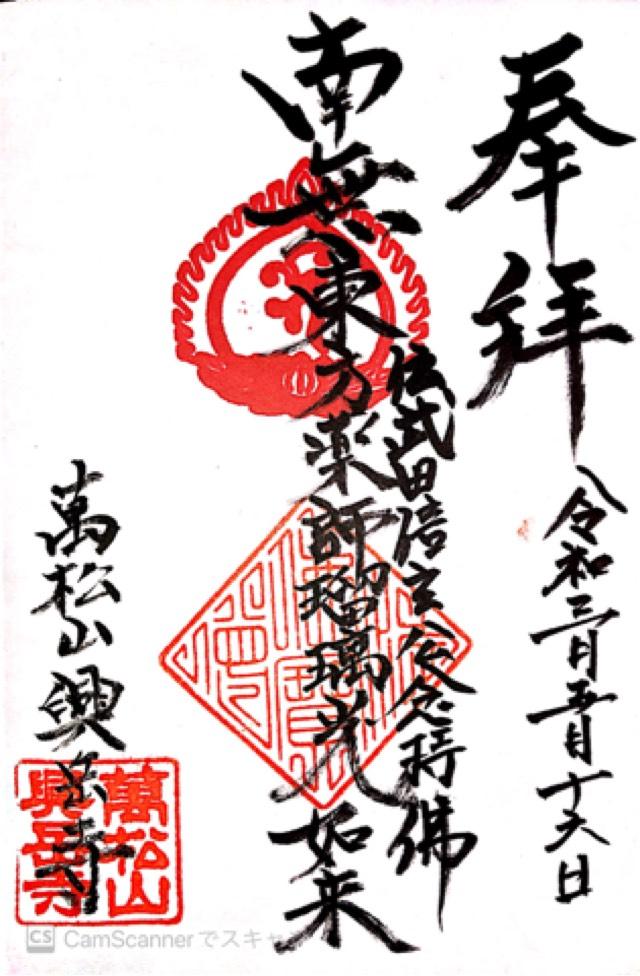 奉拝
令和三月五月十六日
伝武田信玄公念持佛
南無東方薬師瑠璃光如来
萬松山興岳寺
萬松山
興岳寺
CS CamScannerでスキャ